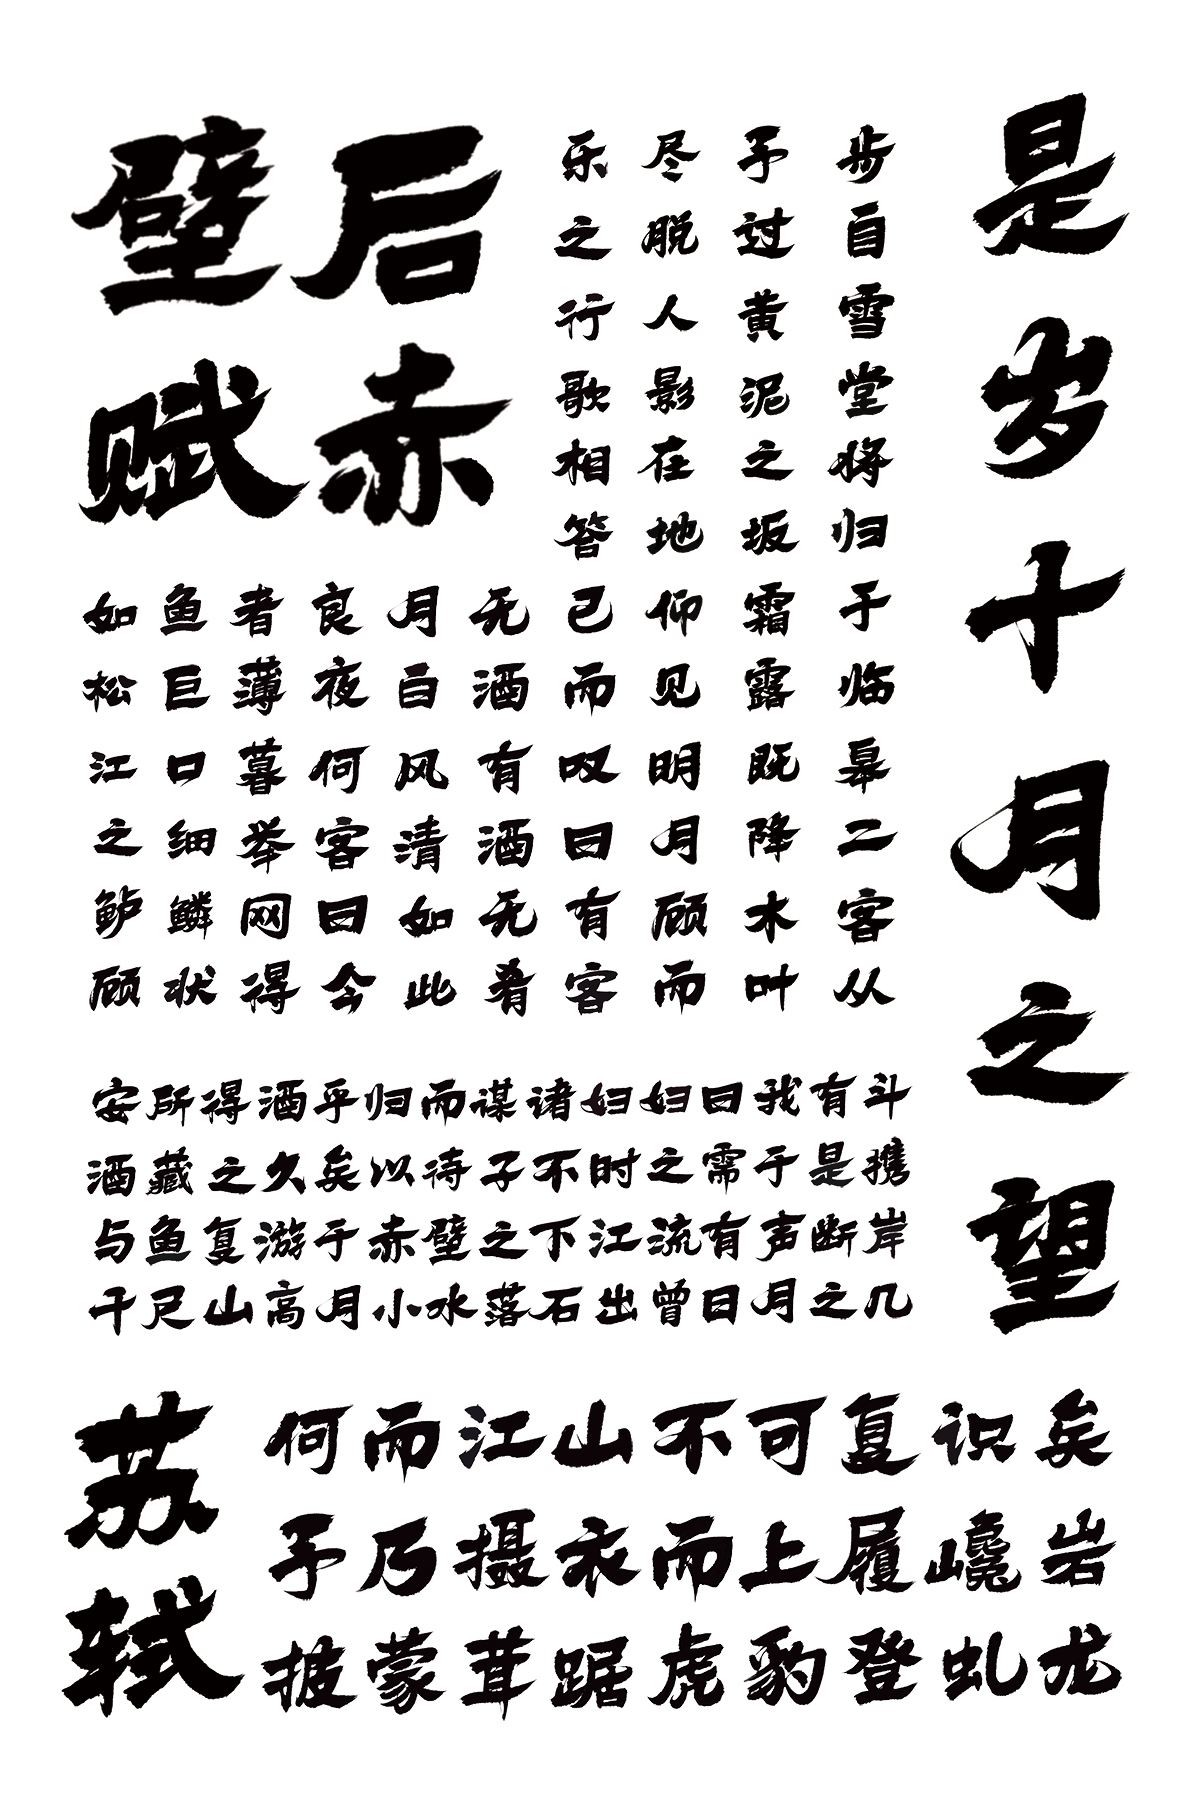 后赤
壁赋
是岁十月之望
步自雪堂将归于临皋二客从
予过黄泥之坂霜露既降木叶
尽脱人影在地仰见明月顾而
乐之行歌相答已而叹曰有客
无酒有酒无肴
月白风清如此
良夜何客曰今
者薄暮举网得
鱼巨口细鳞状
如松江之鲈顾
安所得酒乎归而谋诸妇妇曰我有斗
酒藏之久矣以待子不时之需于是携
与鱼复游于赤壁之下江流有声断岸
千尺山高月小水落石出曾日月之几
何而江山不可复识矣
予乃摄衣而上履巉岩
披蒙茸踞虎豹登虬龙
苏轼